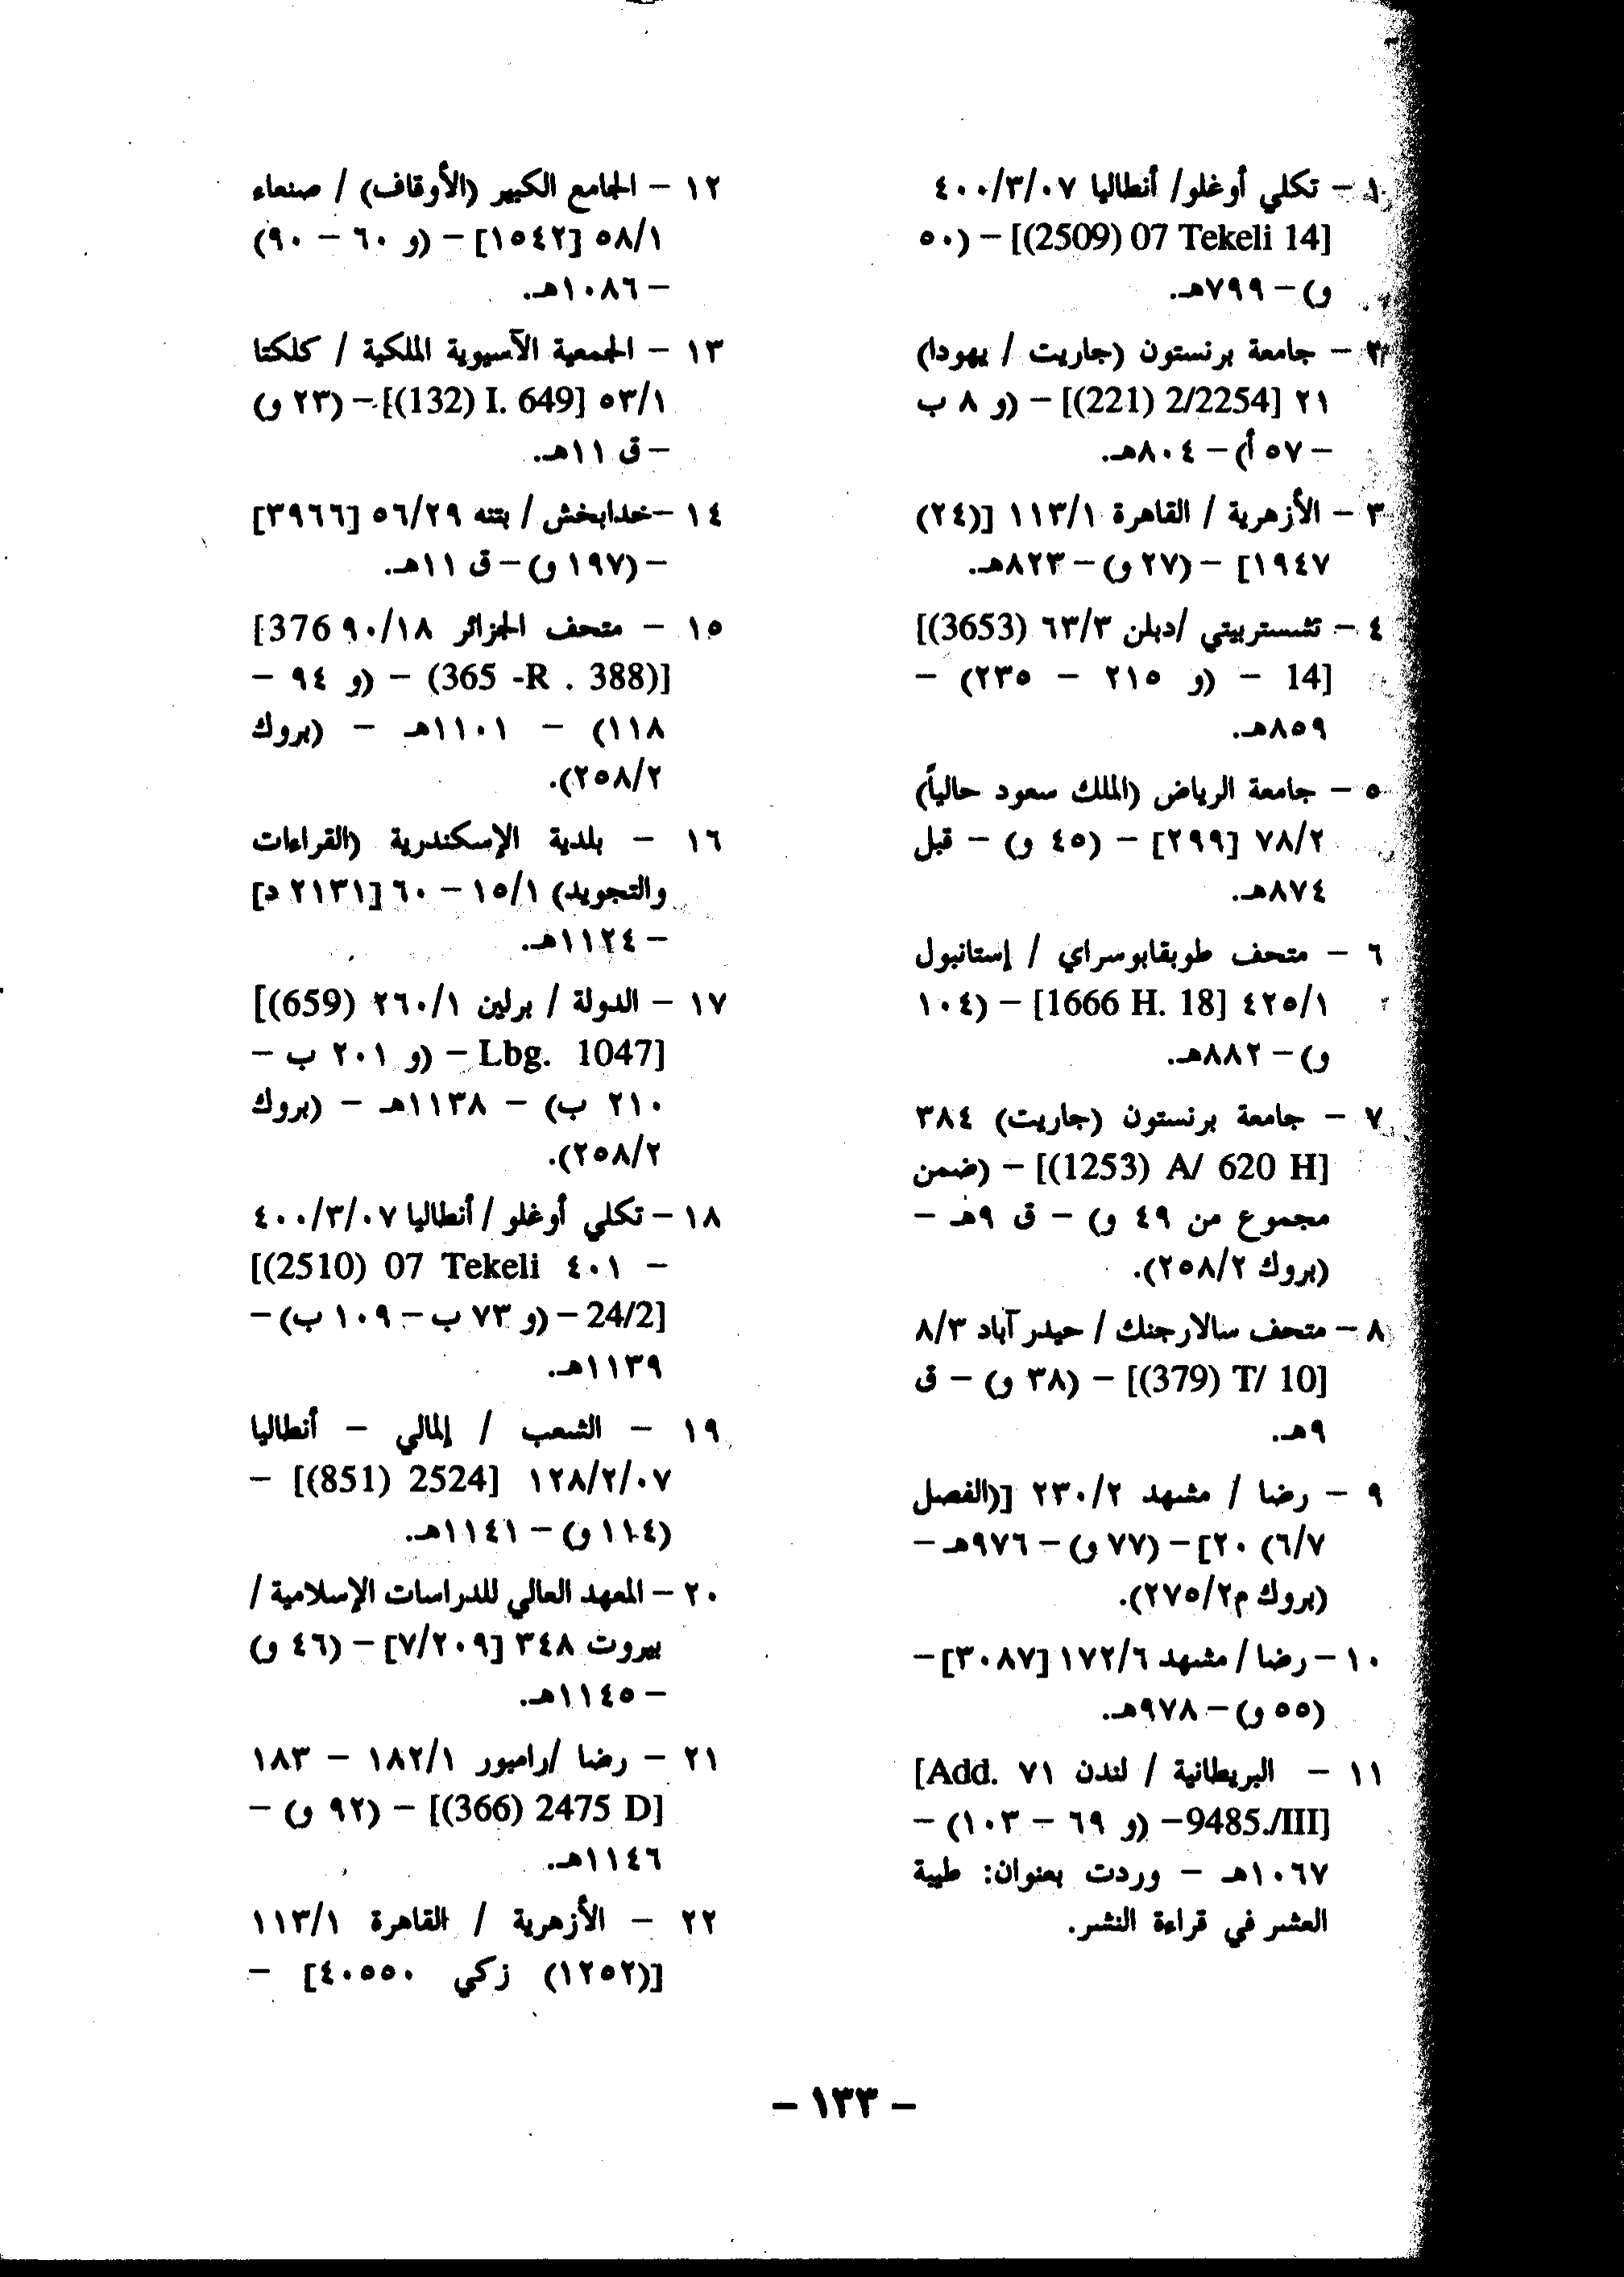 ١ - تكلي أوغلو/ أنطاليا ٤٠٠/٣/٠٧
[(2509) 07 Tekeli 14] - (٥٠
و) - ٧٩٩هـ.
٢ - جامعة برنستون (جاريت / يهودا)
٢١ [(221) 2/2254] - (و ٨ ب
- ٥٧ أ) - ٨٠٤هـ.
٣ - الأزهرية / القاهرة ١١٣/١ [(٢٤)
١٩٤٧] - (٢٧ و) - ٨٢٣هـ.
٤ - تشستربيتي /دبلن ٦٣/٣ [(3653)
14] - (و ٢١٥ - ٢٣٥) -
٨٥٩هـ.
٥ - جامعة الرياض (الملك سعود حالياً)
٧٨/٢ [٢٩٩] - (٤٥ و) - قبل
٨٧٤هـ.
٦ - متحف طوبقابوسراي / إستانبول
٤٢٥/١ [1666 H. 18] - (١٠٤
و) - ٨٨٢هـ.
٧ - جامعة برنستون (جاريت) ٣٨٤
[(1253) A/ 620 H] - (ضمن
مجموع من ٤٩ و) - ق ٩هـ -
(بروك ٢٥٨/٢).
٨ - متحف سالارجنك / حيدر آباد ٨/٣
[(379) T/ 10] - (٣٨ و) - ق
٩هـ.
٩ - رضا / مشهد ٢٣٠/٢ [(الفصل
٦/٧) ٢٠] - (٧٧ و) - ٩٧٦هـ -
(بروك م٢٧٥/٢).
١٠ - رضا / مشهد ١٧٢/٦ [٣٠٨٧] -
(٥٥ و) - ٩٧٨هـ.
١١ - البريطانية / لندن ٧١ [Add.
9485./III] - (و ٦٩ - ١٠٣) -
١٠٦٧هـ - وردت بعنوان: طيبة
العشر في قراءة النشر.
١٢ - الجامع الكبير (الأوقاف) / صنعاء
٥٨/١ [١٥٤٢] - (و ٦٠ - ٩٠)
- ١٠٨٦هـ.
١٣ - الجمعية الآسيوية الملكية / كلكتا
٥٣/١ [(132) I. 649] - (٢٣ و)
- ق ١١هـ.
١٤ - خدابخش / بتنه ٥٦/٢٩ [٣٩٦٦]
- (١٩٧ و) - ق ١١هـ.
١٥ - متحف الجزائر ٩٠/١٨ [376
(365 -R . 388)] - (و ٩٤ -
١١٨) - ١١٠١هـ - (بروك
٢٥٨/٢).
١٦ - بلدية الإسكندرية (القراءات
والتجويد) ١٥/١ - ٦٠ [٢١٣١ د]
- ١١٢٤هـ.
١٧ - الدولة / برلين ٢٦٠/١ [(659)
Lbg. 1047] - (و ٢٠١ ب -
٢١٠ ب) - ١١٣٨هـ - (بروك
٢٥٨/٢).
١٨ - تكلي أوغلو / أنطاليا ٤٠٠/٣/٠٧
- ٤٠١ [(2510) 07 Tekeli
24/2] - (و ٧٣ ب - ١٠٩ ب) -
١١٣٩هـ.
١٩ - الشعب / إلمالي - أنطاليا
١٢٨/٢/٠٧ [(851) 2524] -
(١١٤ و) - ١١٤١هـ.
٢٠ - المعهد العالي للدراسات الإسلامية /
بيروت ٣٤٨ [٧/٢٠٩] - (٤٦ و)
- ١١٤٥هـ.
٢١ - رضا /رامبور ١٨٢/١ - ١٨٣
[(366) 2475 D] - (٩٢ و) -
١١٤٦هـ.
٢٢ - الأزهرية / القاهرة ١١٣/١
[(١٢٥٢) زكي ٤٠٥٥٠] -
- ١٣٣ -